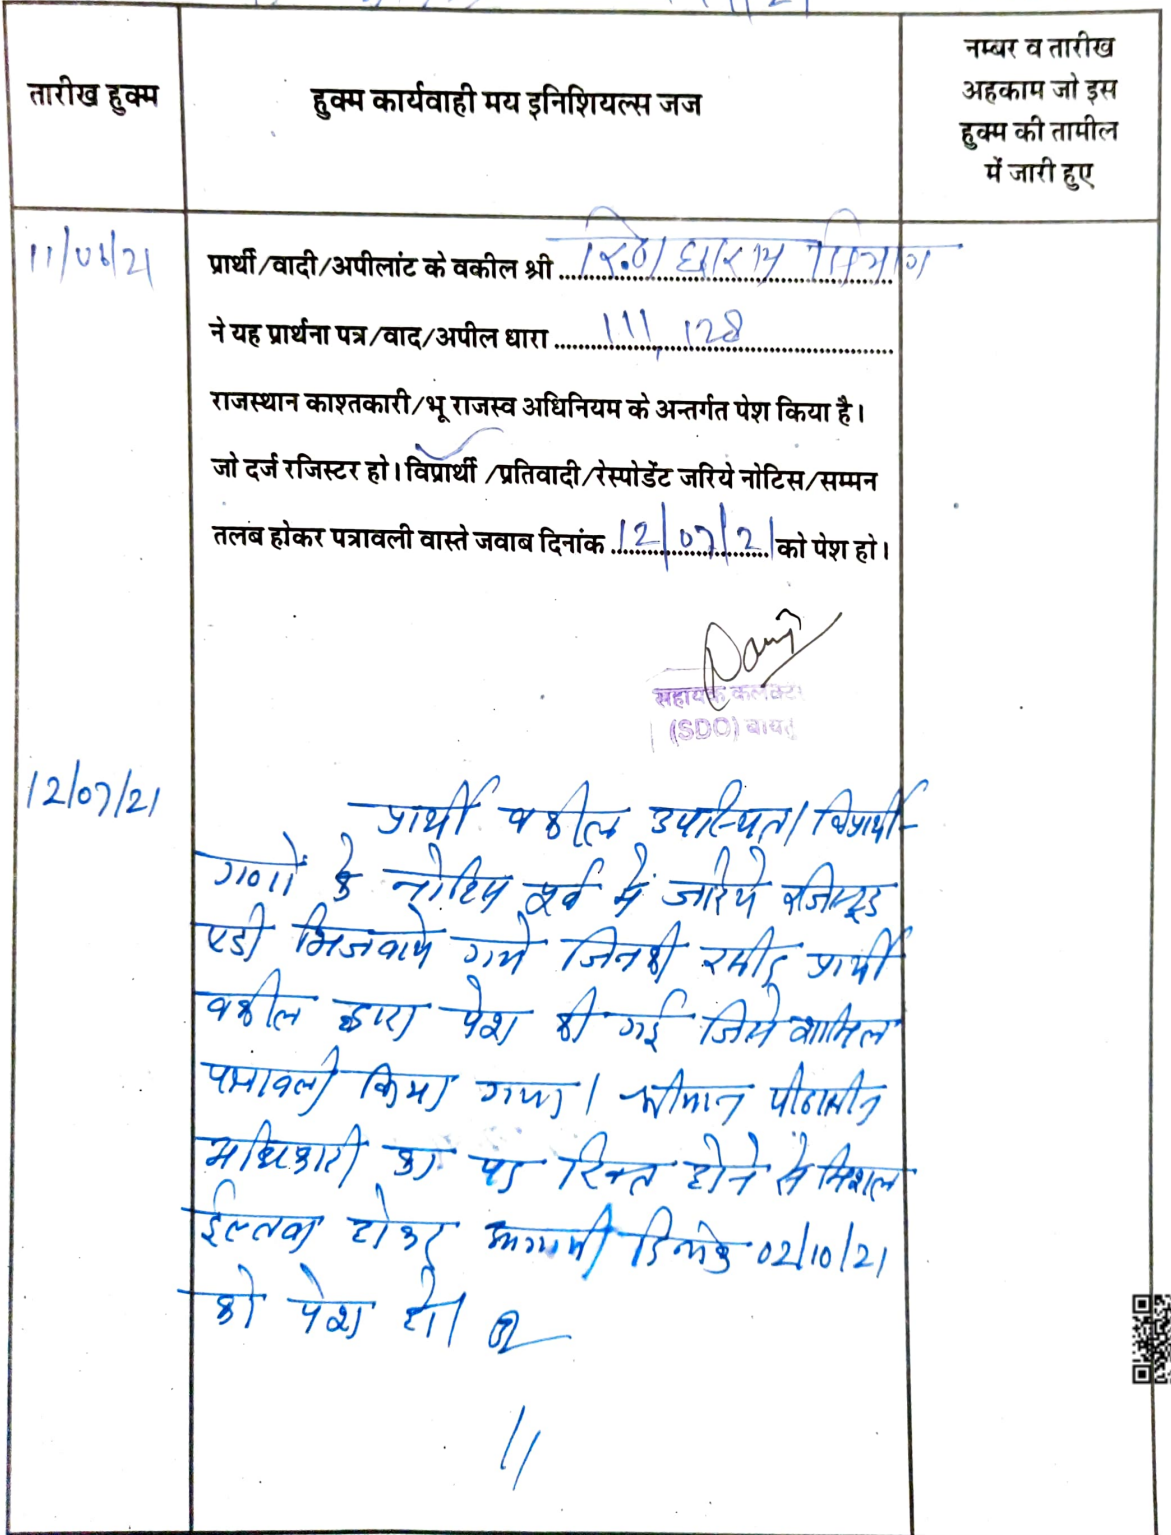 तारीख हुक्म
हुक्म कार्यवाही मय इनिशियल्स जज
नम्बर व तारीख
अहकाम जो इस
हुक्म की तामील
में जारी हुए
11/06/21
प्रार्थी/वादी/अपीलांट के वकील श्री
ने यह प्रार्थना पत्र/वाद/अपील धारा 111, 128
राजस्थान काश्तकारी/भू राजस्व अधिनियम के अन्तर्गत पेश किया है।
जो दर्ज रजिस्टर हो। विप्रार्थी /प्रतिवादी/रेस्पोडेंट जरिये नोटिस/सम्मन
तलब होकर पत्रावली वास्ते जवाब दिनांक 12/07/21 को पेश हो।
सहायक कलक्टर
(SDO) बायतु
12/07/21
प्रार्थी वकील उपस्थित। विप्रार्थी-
गणों के नोटिस पूर्व में जरिये रजिस्टर्ड
एडी भिजवाये गये जिनकी रसीद प्रार्थी
वकील द्वारा पेश की गई जिसे शामिल
पत्रावली किया गया। श्रीमान पीठासीन
अधिकारी का पद रिक्त होने से मिशल
ईल्तवा होकर आगामी दिनांक 02/10/21
को पेश हो।